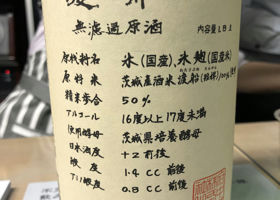 無濾過原酒
内容量1.8L
原材料名 米(国産)、米麹(国産米)
原料米 茨城産酒米渡船
精米歩合 50%
アルコール 16度以上17度未満
使用酵母 茨城県培養酵母
日本酒度 +2前後
酸度 1.4cc前後
アミノ酸度 0.8cc前後